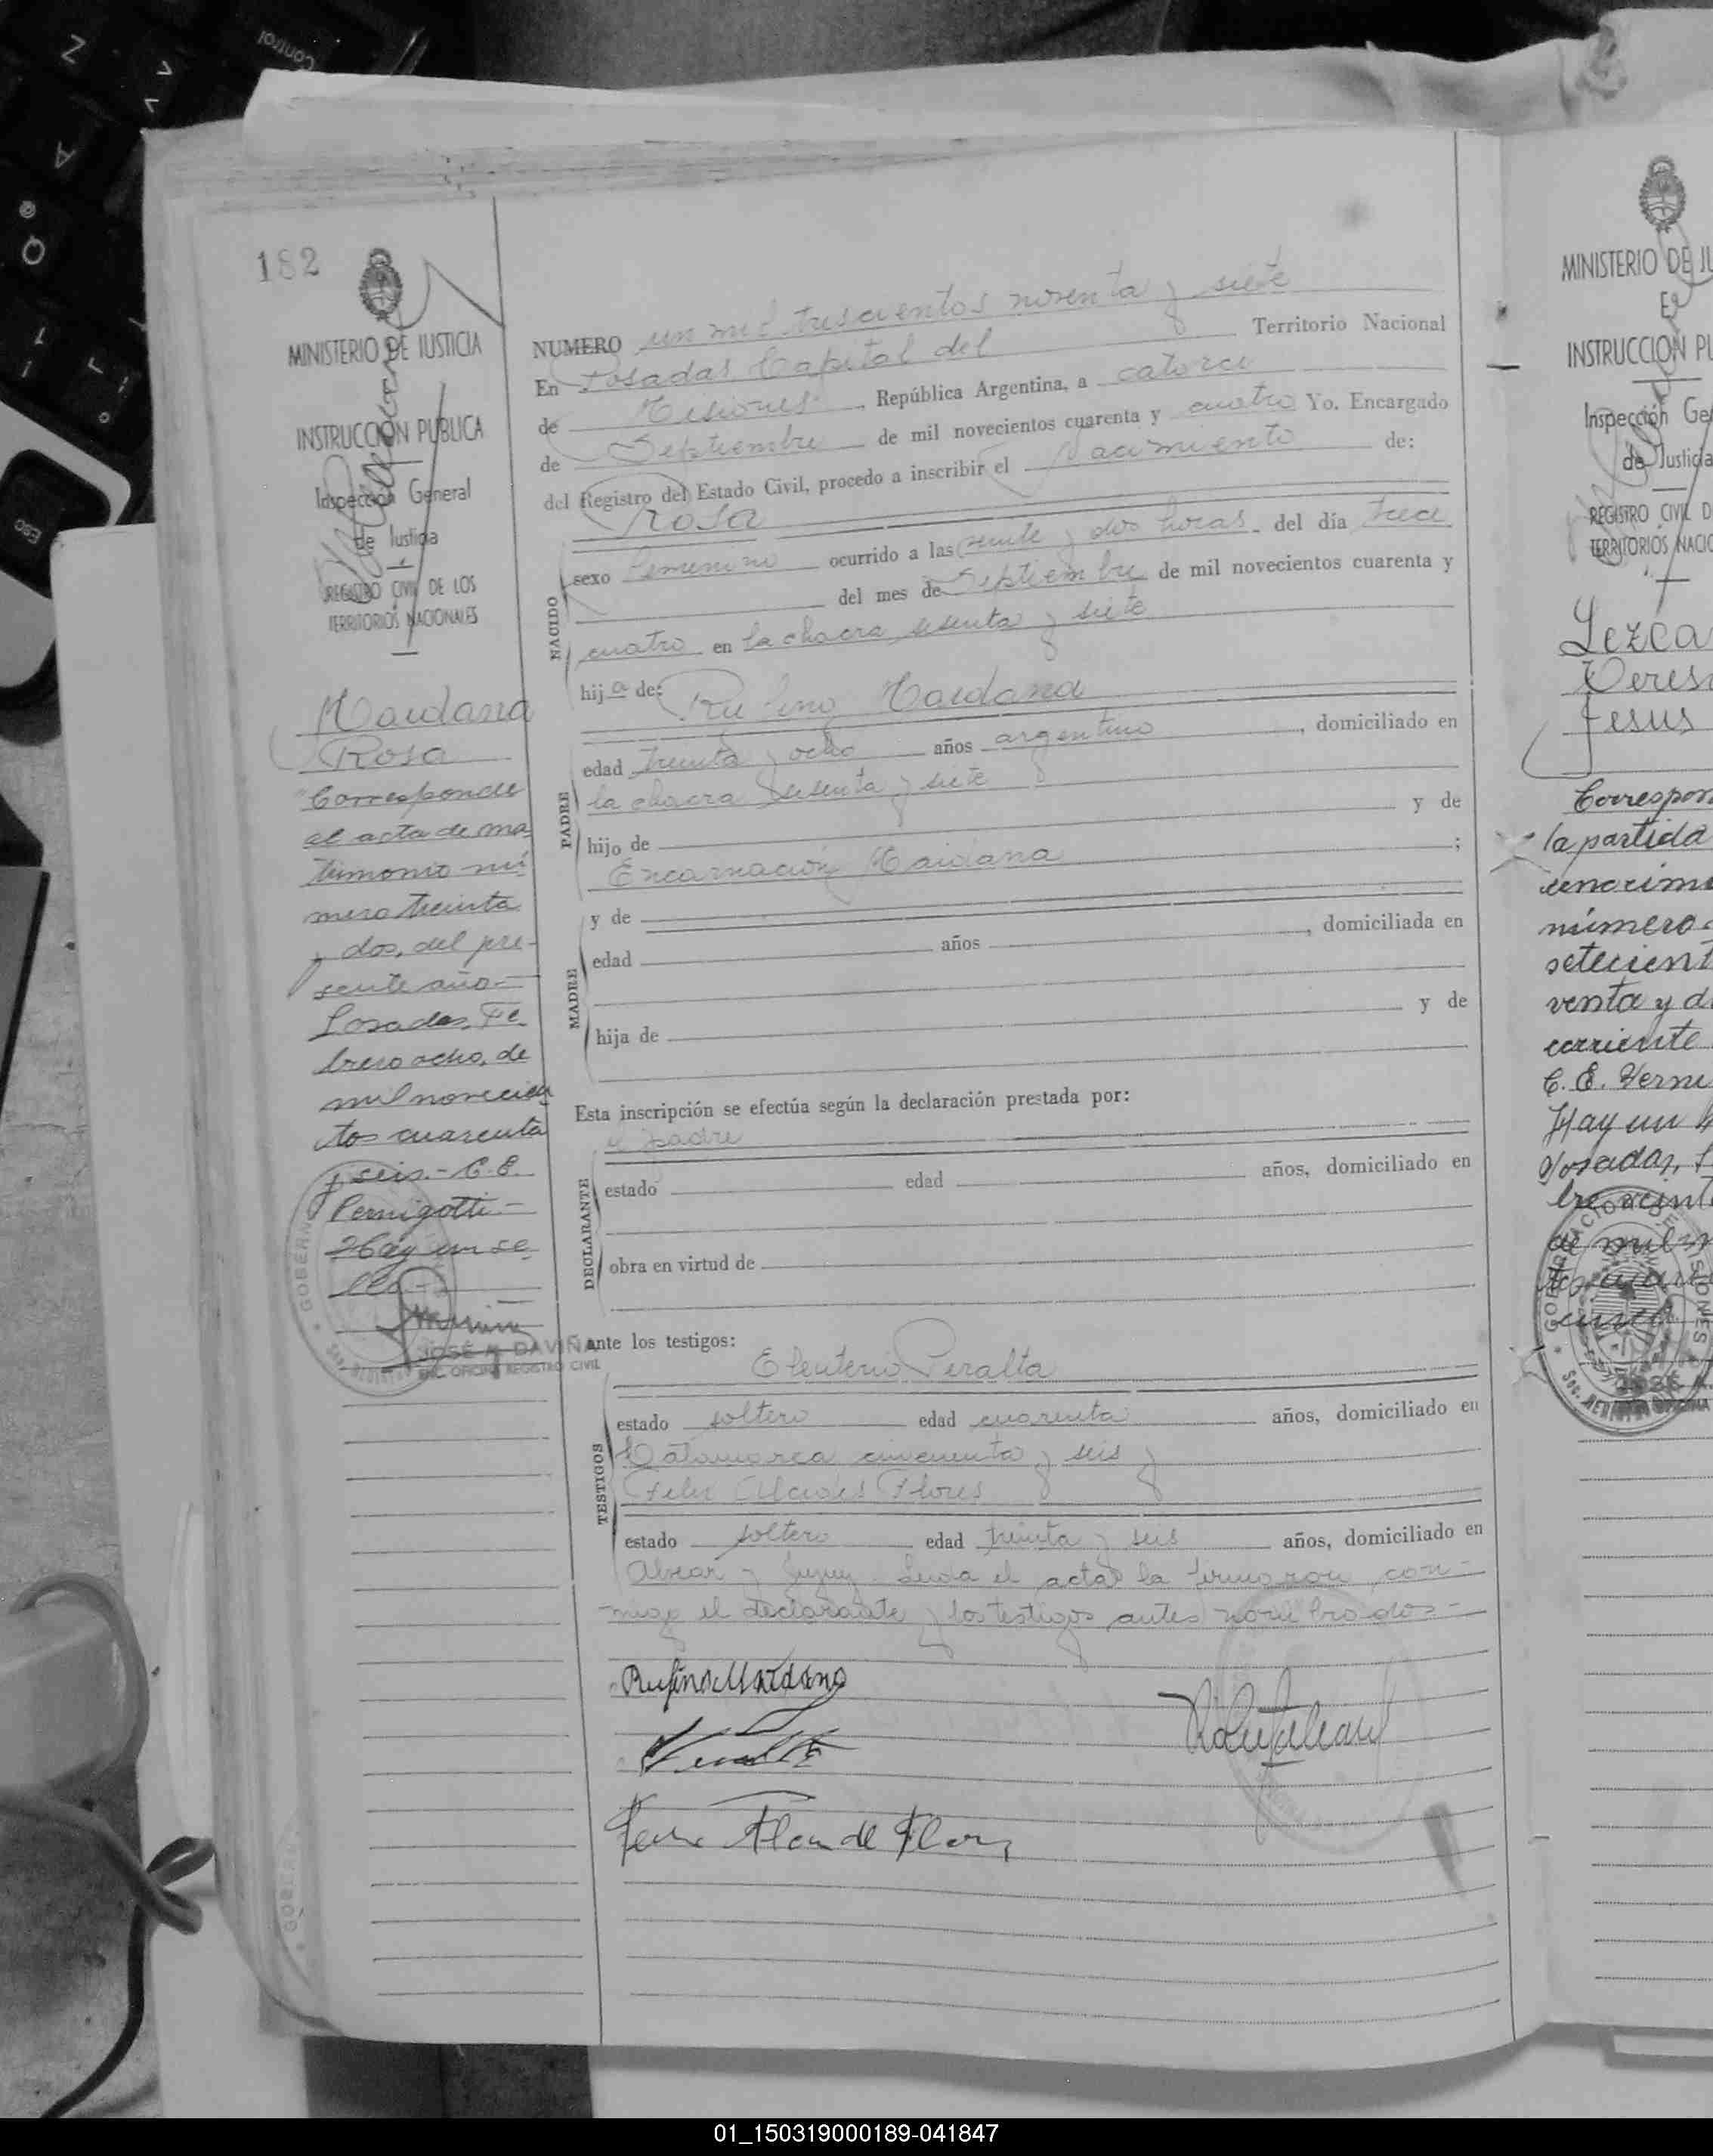 182
MINISTERIO DE JUSTICIA
E
INSTRUCCIÓN PUBLICA
Inspección General
de Justicia
REGISTRO CIVIL DE LOS
TERRITORIOS NACIONALES
Maidana
Rosa
Corresponde
al acta de ma
trimonio nú
mero treinta
y dos, del pre-
sente año-
Posadas, Fe
brero ocho, de
mil novecien
tos cuarenta
y seis.- C. E.
Pernigotti-
Hay un se
llo-
JOSÉ A. DAVIÑA
ENC. OFICINA REGISTRO CIVIL
NUMERO un mil trescientos noventa y siete
En Posadas, Capital del Territorio Nacional
de Misiones, República Argentina, a catorce
de Septiembre de mil novecientos cuarenta y cuatro Yo. Encargado
del Registro del Estado Civil, procedo a inscribir el Nacimiento de:
Rosa
NACIDO
sexo femenino ocurrido a las veinte y dos horas del día trece
del mes de Septiembre de mil novecientos cuarenta y
cuatro en la chacra sesenta y siete
hija de: Rufino Maidana
PADRE
edad treinta y ocho años argentino, domiciliado en
la chacra sesenta y siete
hijo de y de
Encarnación Maidana ;
MADRE
y de
edad años , domiciliada en
hija de y de
Esta inscripción se efectúa según la declaración prestada por:
el padre
DECLARANTE
estado edad años, domiciliado en
obra en virtud de
Ante los testigos:
Eleuterio Peralta
TESTIGOS
estado soltero edad cuarenta años, domiciliado en
Catamarca cincuenta y seis y
Felix Alcides Flores
estado soltero edad treinta y seis años, domiciliado en
Alvear y Jujuy. Leida el acta la firmaron con-
migo el declarante y los testigos antes nombrados-
Rufino Maidana
MINISTERIO DE JU
E
INSTRUCCION PU
Inspección Ge
de Justicia
REGISTRO CIVIL D
TERRITORIOS NACIO
Lezca
Teres
Jesus
Correspon
la partida
número
setecient
venta y d
corriente
Hay un
Posadas,
01_150319000189-041847